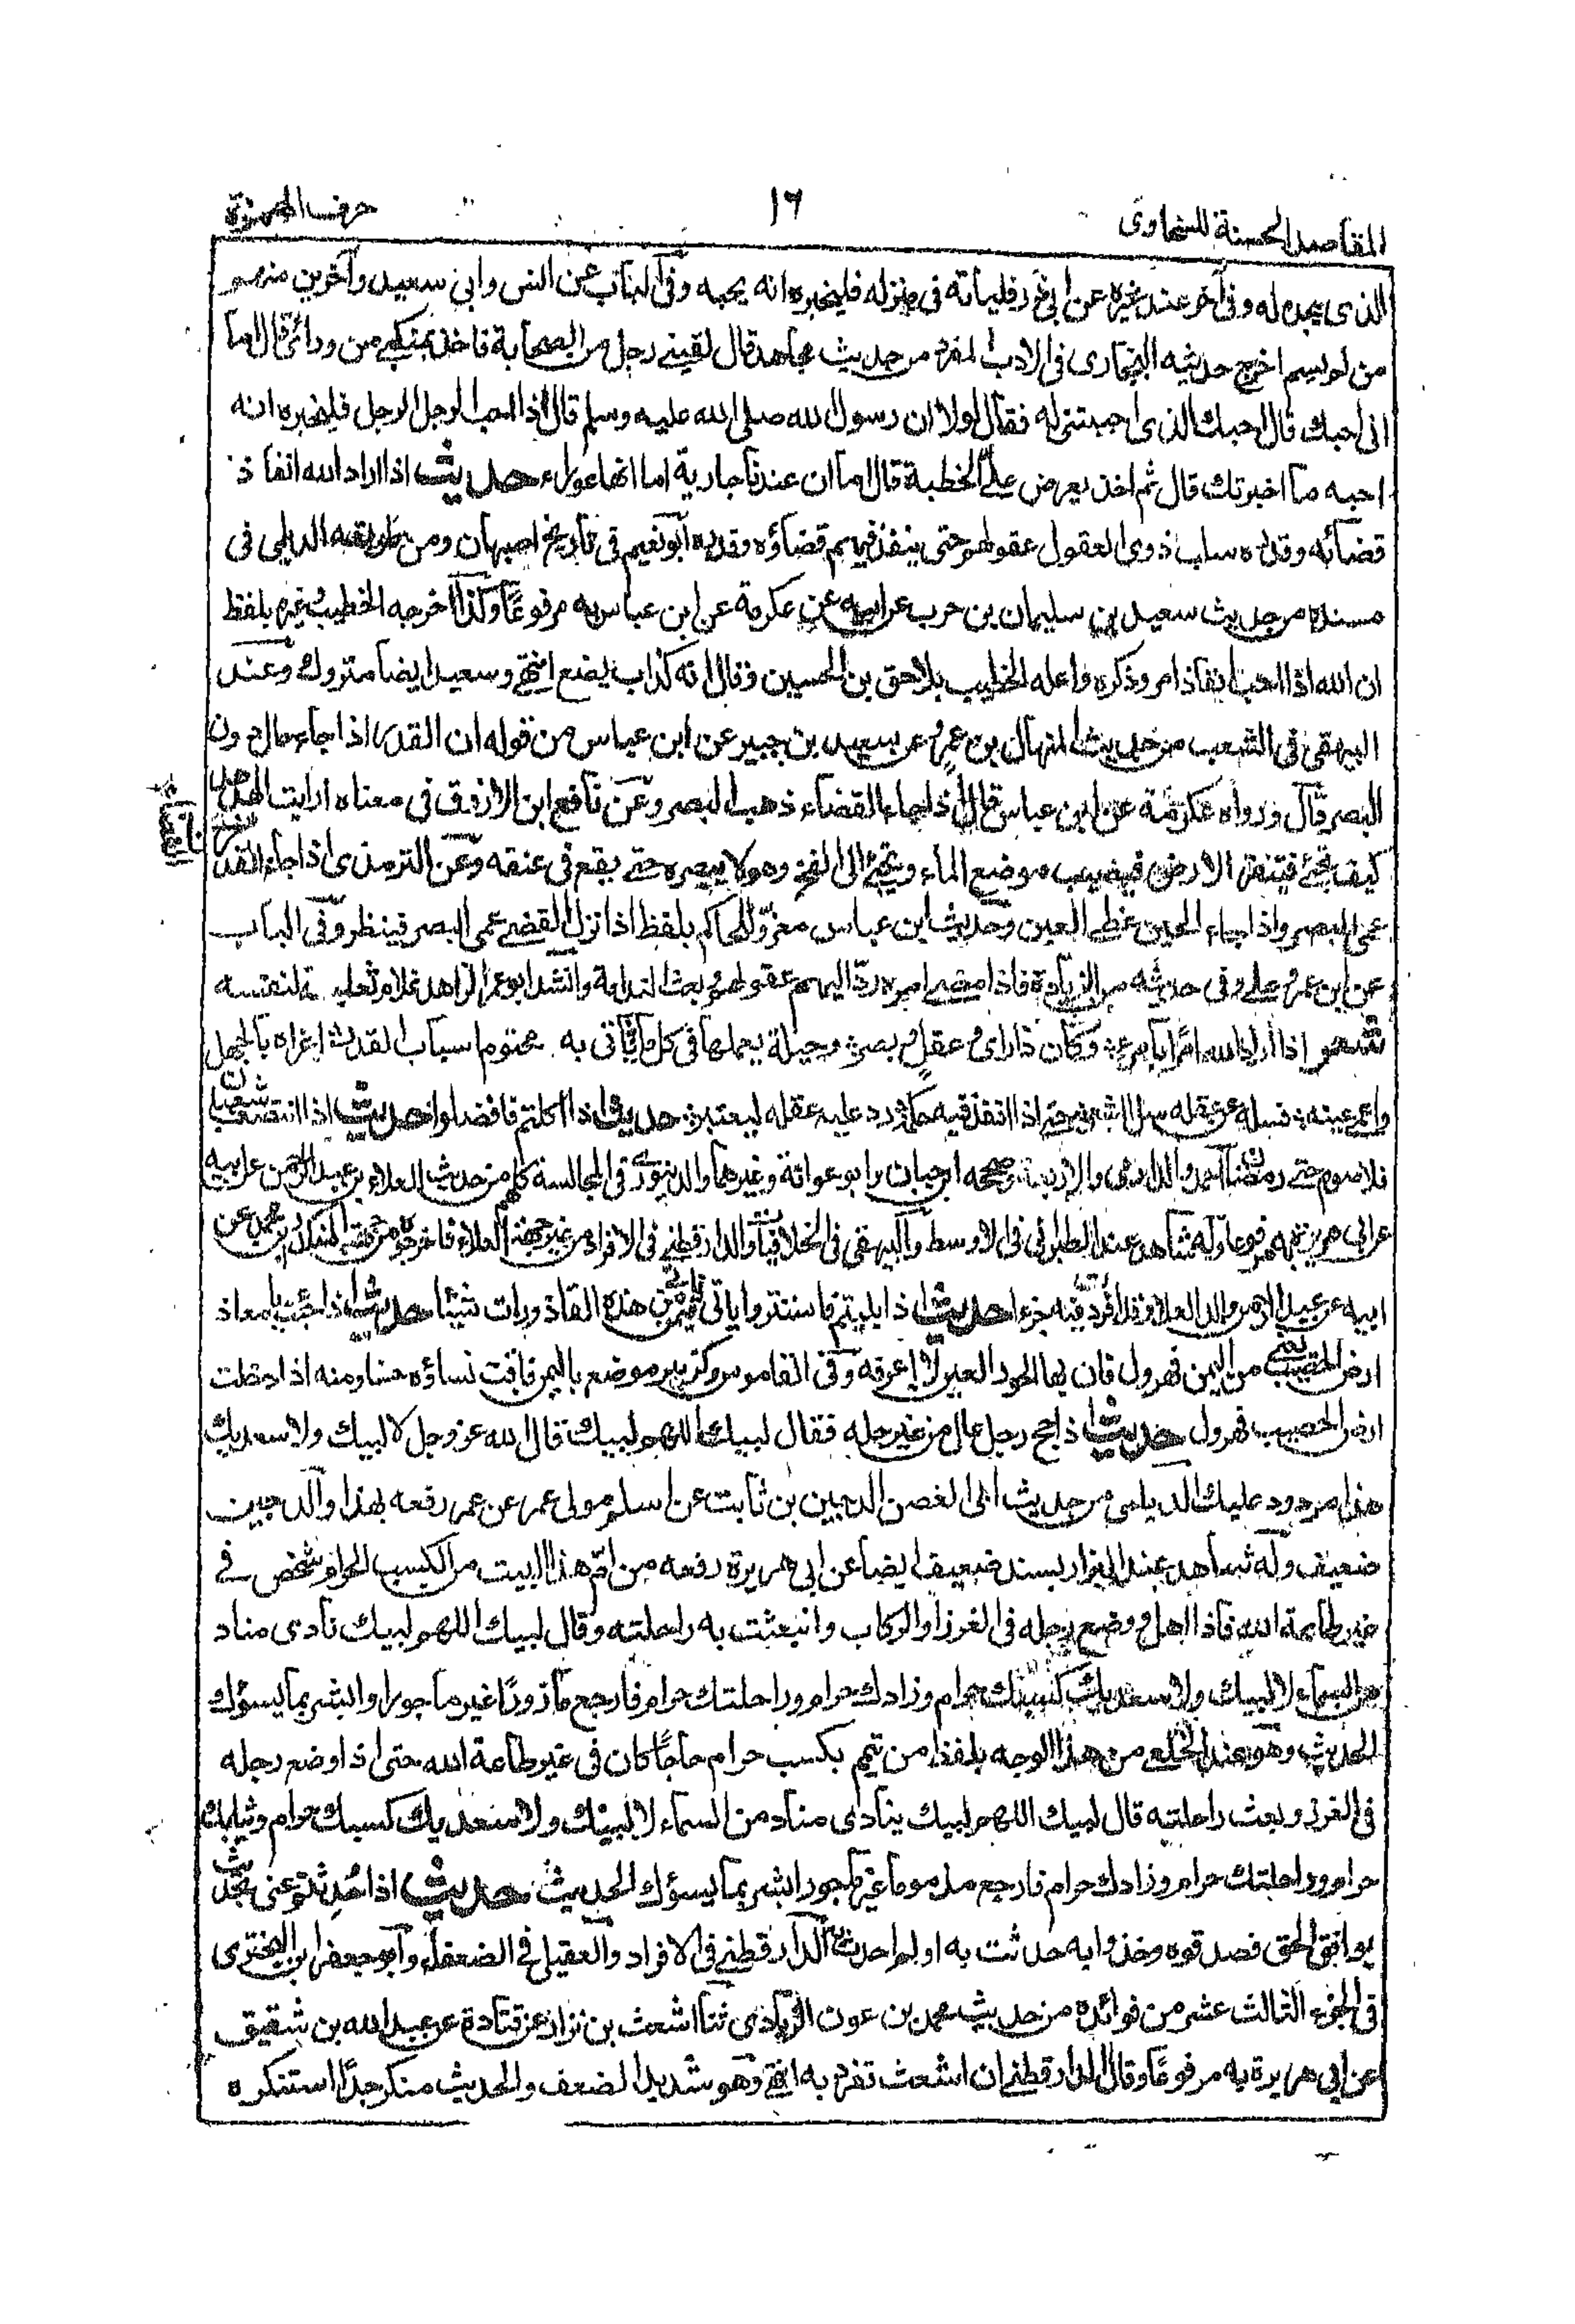 المقاصد الحسنة للسخاوى
١٦
حرف الهمزة
الذى يجده له وفى آخر عند غيره عن ابى ذر فليأته فى منزله فليخبره انه يحبه وفى الباب عن انس وابى سعيد وآخرين منهم
من لم يسم اخرج حديثه البخارى فى الادب المفرد من حديث مجاهد قال لقينى رجل من الصحابة فاخذ بمنكبى من ورائى قال اما
انى احبك قال احبك الذى احببتنى له فقال لولا ان رسول الله صلى الله عليه وسلم قال اذا احب الرجل الرجل فليخبره انه
احبه ما اخبرتك قال ثم اخذ يعرض على الخطبة قال اما ان عندنا جارية اما انها عوراء حديث اذا اراد الله انفاذ
قضائه وقدره سلب ذوى العقول عقولهم حتى ينفذ فيهم قضاؤه وقدره ابو نعيم فى تاريخ اصبهان ومن طريقه الديلمى فى
مسنده من حديث سعيد بن سليمان بن حرب عن ابيه عن عكرمة عن ابن عباس به مرفوعًا وكذا اخرجه الخطيب وغيره بلفظ
ان الله اذا احب انفاذ امر وذكره واعله الخطيب بلاحق بن الحسين وقال انه كذاب يضع انتهى وسعيد ايضا متروك وعند
البيهقى فى الشعب من حديث المنهال بن عمرو عن سعيد بن جبير عن ابن عباس من قوله ان القدر اذا جاء حال دون
البصر قال ورواه عكرمة عن ابن عباس قال اذا جاء القضاء ذهب البصر وعن نافع ابن الازرق فى معناه ارايت الهدهد
كيف يجئ فينقر الارض فيصيب موضع الماء ويجئ الى الفخ وهو لا يبصره حتى يقع فى عنقه وعن الترمذى اذا جاء القدر
عمى البصر واذا جاء الحين غطى العين وحديث ابن عباس معزو للحاكم بلفظ اذا نزل القضى عمى البصر فينظر وفى الباب
عن ابن عمر وعلى وفى حديثه من الزيادة فاذا مضى امره ردّ اليهم عقولهم وبعث الندامة وانشد ابو عمر الزاهد غلام ثعلب لنفسه
شعر اذا اراد الله امرًا بامرء وكان ذا راى وعقل وبصر وحيلة يعملها فى كل ما ياتى به محتوم اسباب القدر اغراه بالجهل
واعمى عينه فسله عن عقله سل الشعر حتى اذا انفذ فيه حكمه رد عليه عقله ليعتبر حديث اذا اكلتم فافضلوا حديث اذا انتصف شعبان
فلا صوم حتى رمضان احمد والدارمى والاربعة وصححه ابن حبان وابو عوانة وغيرهما والدينورى فى المجالسة كلهم من حديث العلاء بن عبد الرحمن عن ابيه
عن ابى هريرة به مرفوعا وله شاهد عند الطبرانى فى الاوسط والبيهقى فى الخلافيات والدارقطنى فى الافراد من غير جهة العلاء فاخرجوه من جهة المنكدر بن محمد عن
ابيه عن عبد الرحمن والد العلاء وقد افردت فيه جزءا حديث اذا بليتم فاستتروا ياتى فى من اتى من هذه القاذورات شيئا حديث اذا جئت يا معاذ
ارض الحصيب يعنى من اليمن فهرول فان بها الحور العين لا اعرفه وفى القاموس وكزبير موضع باليمن فاقت نساؤه حسنا ومنه اذا دخلت
ارض الحصيب فهرول حديث اذا حج رجل بمال من غير حله فقال لبيك اللهم لبيك قال الله عز وجل لا لبيك ولا سعديك
هذا مردود عليك الديلمى من حديث ابى الغصن الدجين بن ثابت عن اسلم مولى عمر عن عمر رفعه بهذا والدجين
ضعيف وله شاهد عند البزار بسند ضعيف ايضا عن ابى هريرة رفعه من ام هذا البيت من الكسب الحرام شخص فى
غير طاعة الله فاذا اهل ووضع رجله فى الغرز او الركاب وانبعثت به راحلته وقال لبيك اللهم لبيك نادى مناد
من السماء لا لبيك ولا سعديك كسبك حرام وزادك حرام وراحلتك حرام فارجع مأزورًا غير ماجورا وابشر بما يسؤك
الحديث وهو عند الخلعى من هذا الوجه بلفظ من تيمم بكسب حرام حاجًا كان فى غير طاعة الله حتى اذا وضع رجله
فى الغرز وبعث راحلته قال لبيك اللهم لبيك ينادى مناد من السماء لا لبيك ولا سعديك كسبك حرام وثيابك
حرام وراحلتك حرام وزادك حرام فارجع مذموما غير ماجور ابشر بما يسؤك الحديث حديث اذا حُدِّثتم عنى بحديث
يوافق الحق فصدقوه وخذوا به حدثت به او لم احدث الدارقطنى فى الافراد والعقيلى فى الضعفاء وابو جعفر ابن البخترى
فى الجزء الثالث عشر من فوائده من حديث محمد بن عون الزيادى ثنا اشعث بن نزار عن قتادة عن عبد الله بن شقيق
عن ابى هريرة به مرفوعًا وقال الدارقطنى ان اشعث تفرد به انتهى وهو شديد الضعف والحديث منكر جدًا استنكره